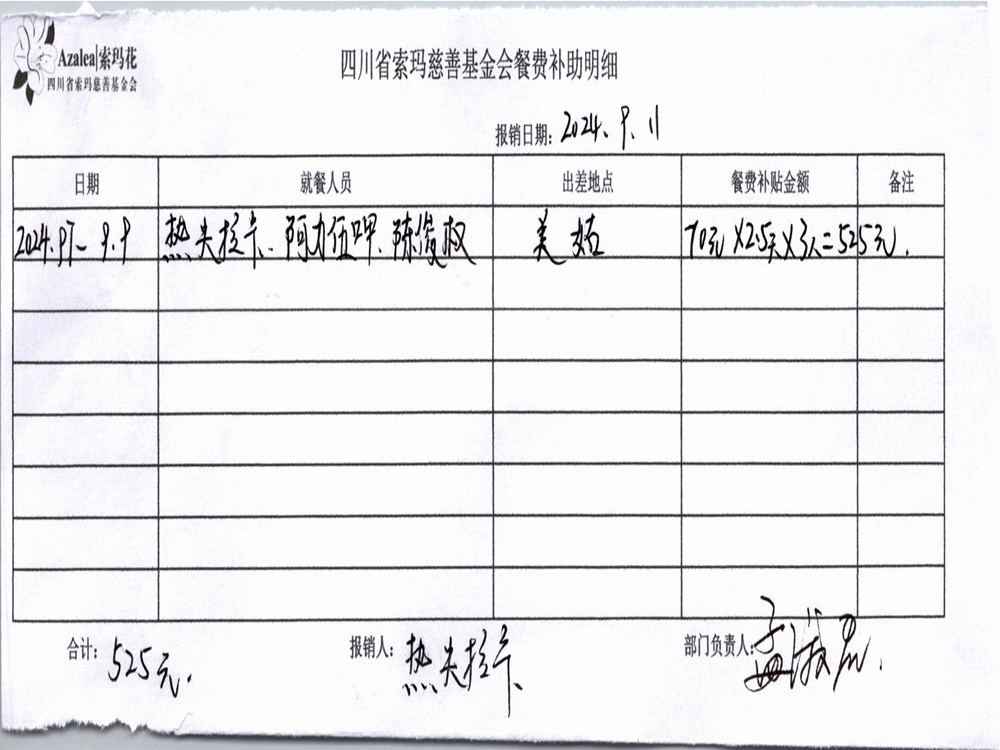 Azalea|索玛花
四川省索玛慈善基金会
四川省索玛慈善基金会餐费补助明细
报销日期: 2024.9.11
日期 就餐人员 出差地点 餐费补贴金额 备注
2024.9.7- 9.9 热夫拉卡、阿力伍呷、陈俊权 美姑 70元×2.5天×3人=525元.
合计: 525元. 报销人: 热夫拉卡 部门负责人: